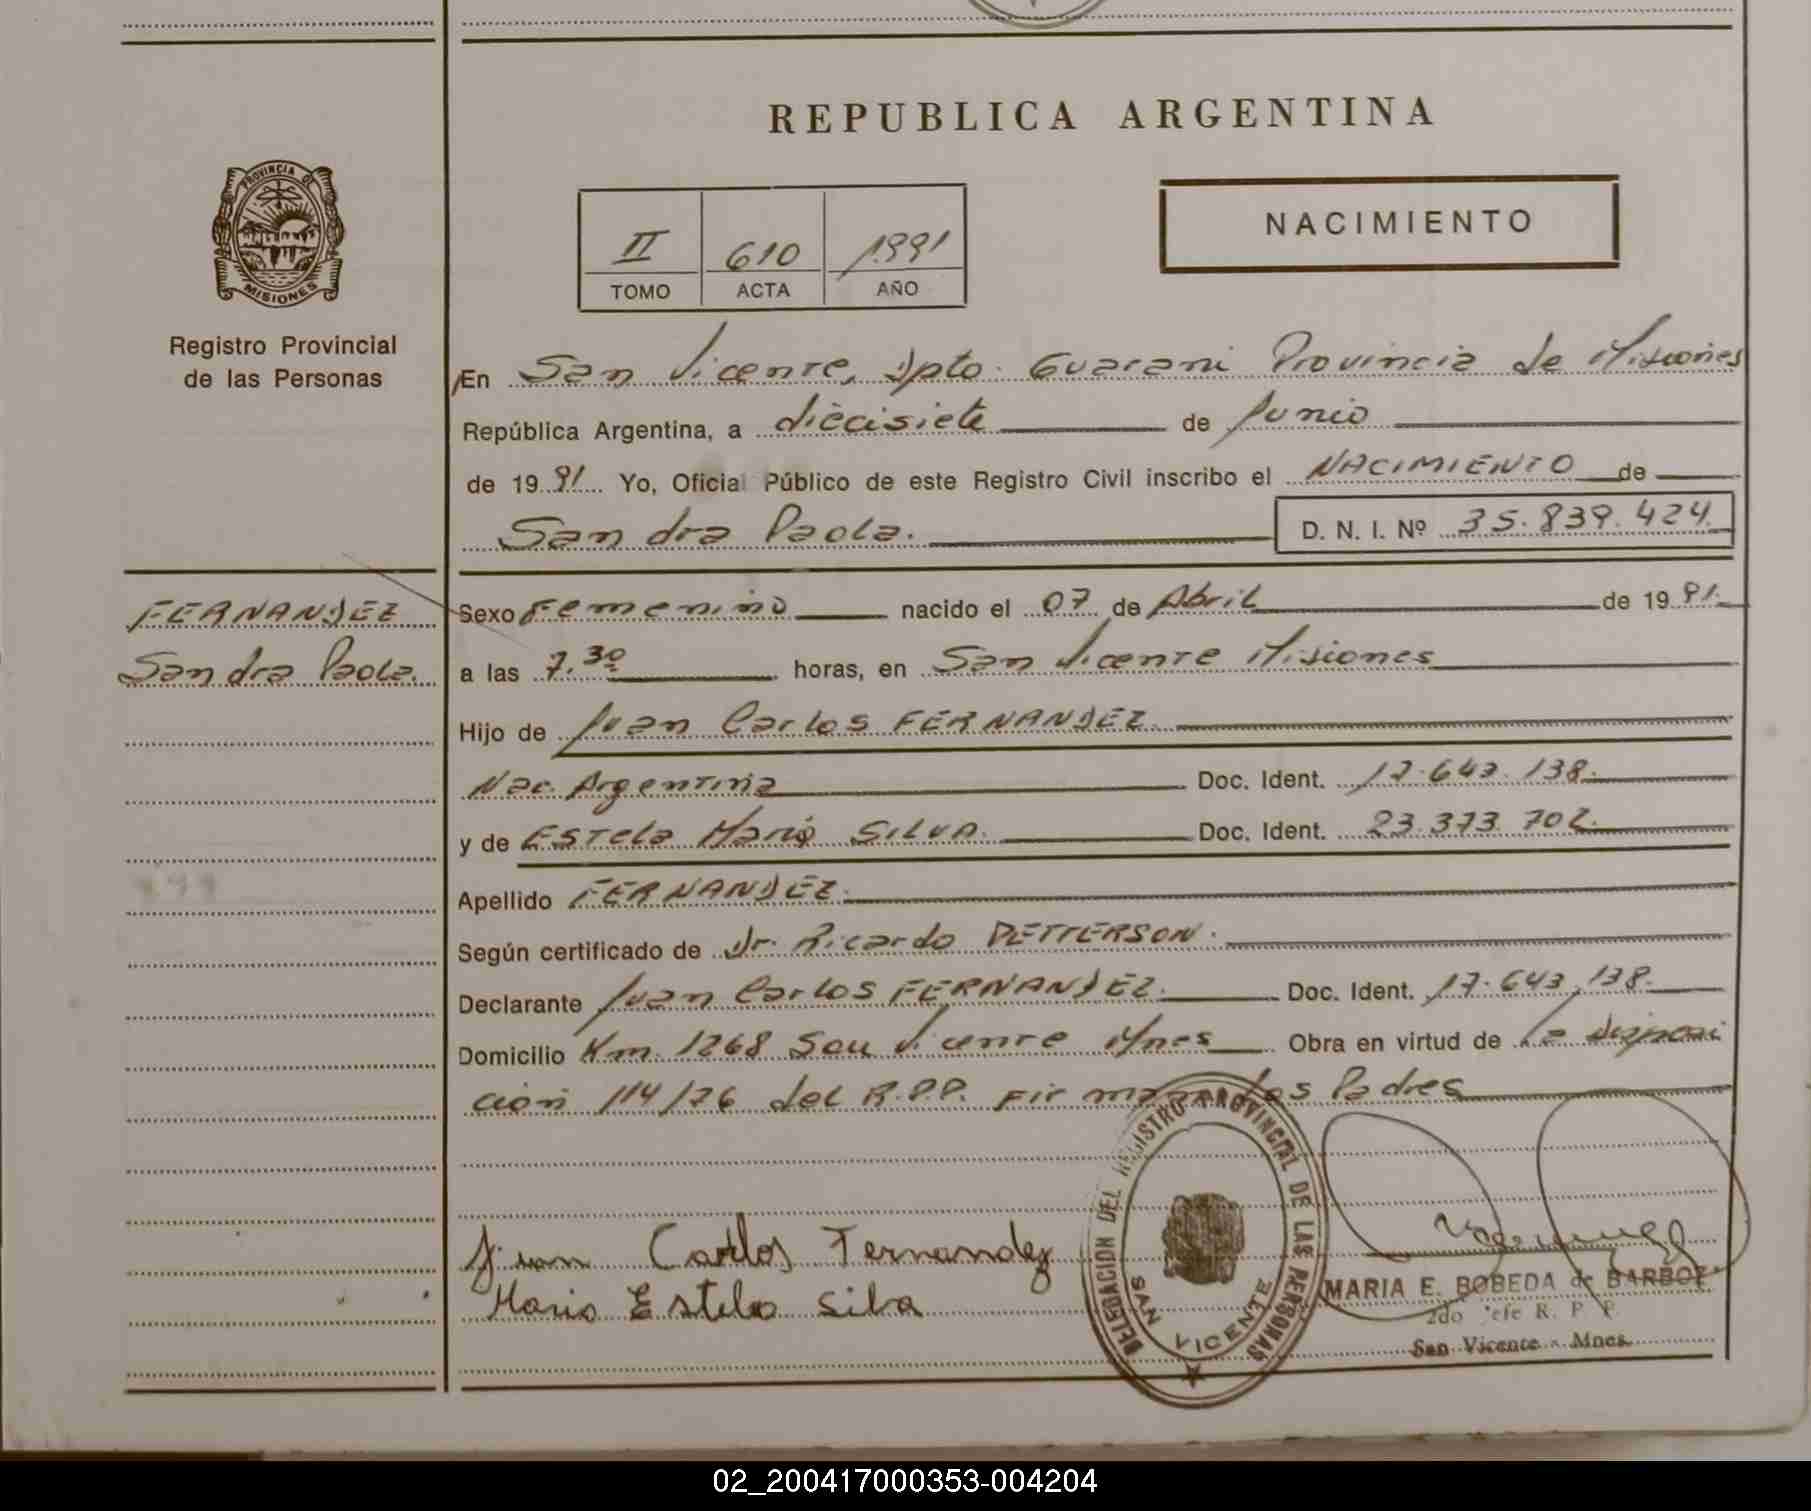 REPUBLICA ARGENTINA
PROVINCIA DE
MISIONES
Registro Provincial
de las Personas
II 610 1991
TOMO ACTA AÑO
NACIMIENTO
En San Vicente, Dpto. Guarani Provincia de Misiones
República Argentina, a diecisiete de Junio
de 1991 Yo, Oficial Público de este Registro Civil inscribo el NACIMIENTO de
Sandra Paola. D. N. I. Nº 35.839.424
FERNANDEZ
Sandra Paola.
Sexo Femenino nacido el 07 de Abril de 1991.
a las 7.30 horas, en San Vicente Misiones
Hijo de Juan Carlos FERNANDEZ.
Nac. Argentina Doc. Ident. 17.643.138.
y de Estela Maria SILVA. Doc. Ident. 23.373.702.
Apellido FERNANDEZ.
Según certificado de Dr. Ricardo PETTERSON.
Declarante Juan Carlos FERNANDEZ. Doc. Ident. 17.643.138.
Domicilio Km. 1268 San Vicente Mnes Obra en virtud de la Disposi
ción 114/76 del R.P.P. Firman los Padres
Juan Carlos Fernandez
Maria Estela Silva
DELEGACION DEL REGISTRO PROVINCIAL DE LAS PERSONAS
SAN VICENTE
MARIA E. BOBEDA de BARBOZ
2do Jefe R. P. P.
San Vicente - Mnes.
02_200417000353-004204